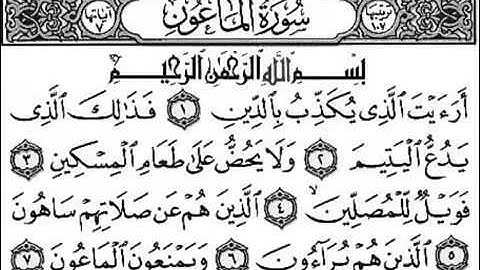 ترتيبها ١٠٧ سُورَةُ المَاعُونِ آياتها ٧
بِسْمِ اللَّهِ الرَّحْمَٰنِ الرَّحِيمِ
أَرَءَيْتَ الَّذِى يُكَذِّبُ بِالدِّينِ ١ فَذَٰلِكَ الَّذِى
يَدُعُّ الْيَتِيمَ ٢ وَلَا يَحُضُّ عَلَىٰ طَعَامِ الْمِسْكِينِ ٣
فَوَيْلٌ لِّلْمُصَلِّينَ ٤ الَّذِينَ هُمْ عَن صَلَاتِهِمْ سَاهُونَ
٥ الَّذِينَ هُمْ يُرَآءُونَ ٦ وَيَمْنَعُونَ الْمَاعُونَ ٧